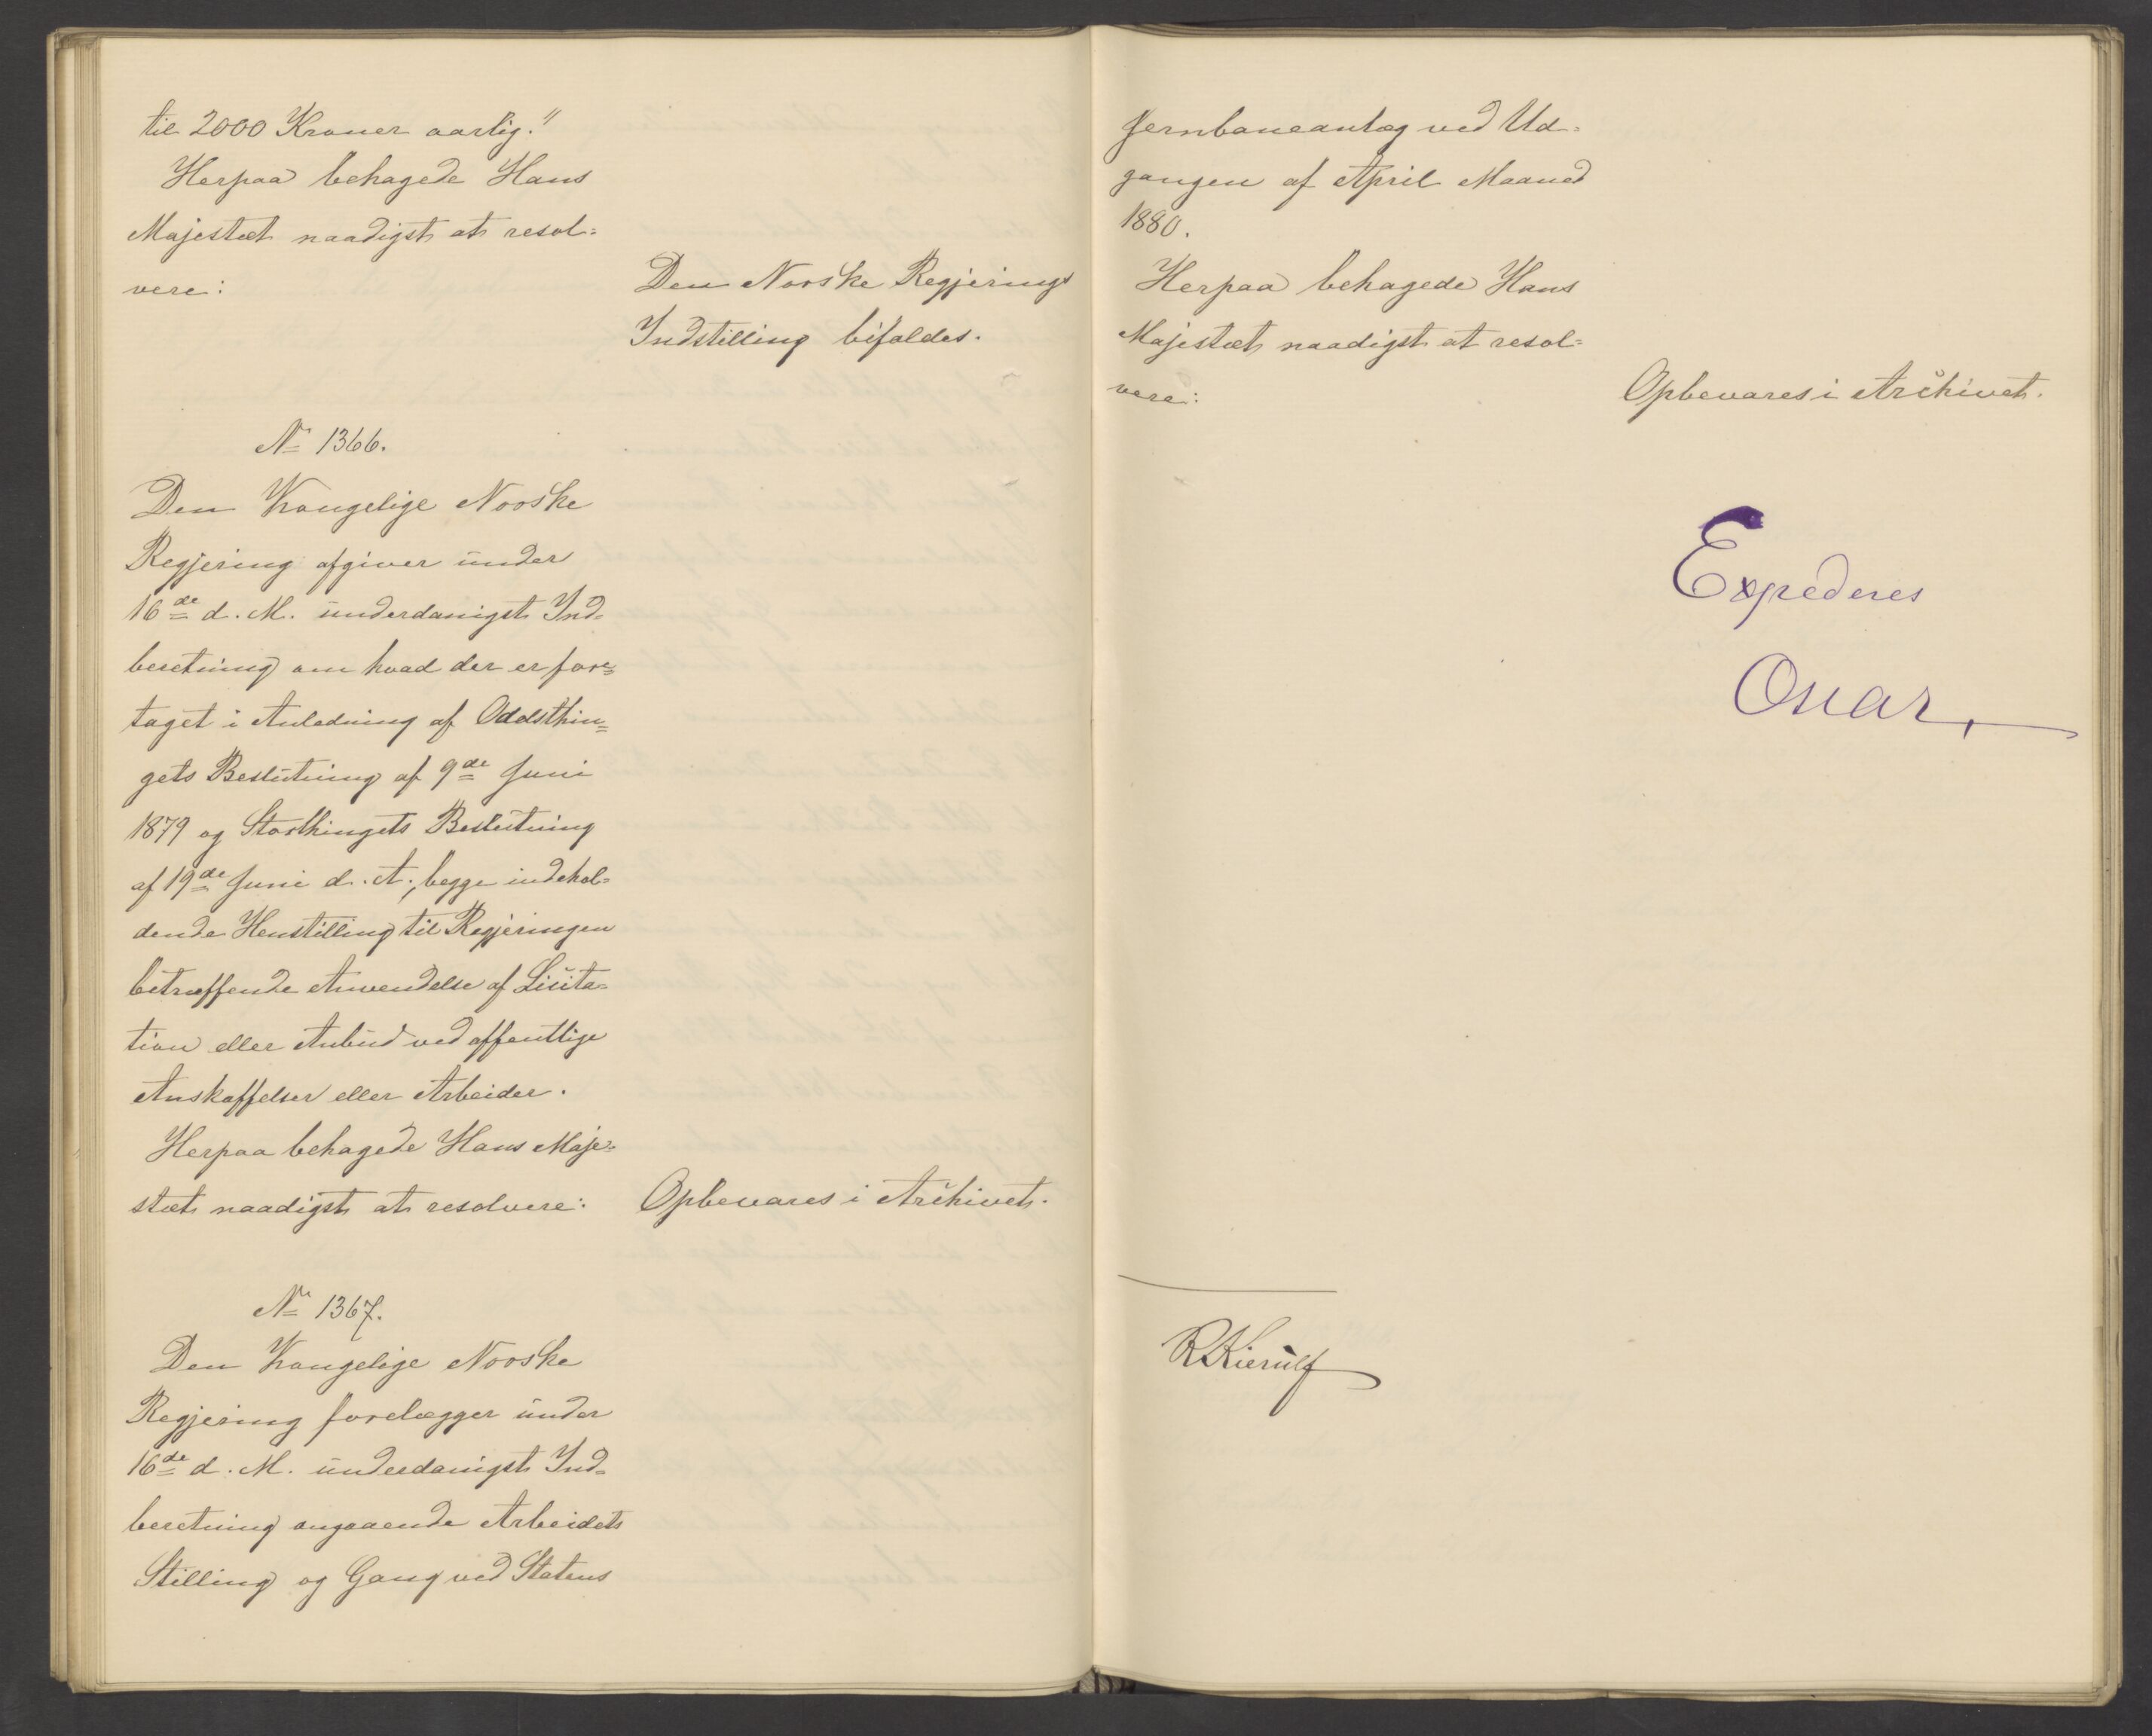 til 2000 Kroner aarlig."
Herpaa behagede Hans
Majestæt naadigst at resol=
vere:
Den Norske Regjerings
Indstilling bifaldes.
No 1366.
Den Kongelige Norske
Regjering afgiver under
16de d. M. underdanigst Ind=
beretning om hvad der er fore=
taget i Anledning af Oddsthin=
gets Beslutning af 9de Juni
1879 og Storthingets Beslutning
af 19de Juni d. A., begge indehol=
dende Henstilling til Regjeringen
betræffende Anvendelse af Licita=
tion eller Anbud ved offentlige
Anskaffelser eller Arbeider.
Herpaa behagede Hans Maje=
stæt naadigst at resolvere:
Opbevares i Archivet.
No 1367.
Den Kongelige Norske
Regjering forelægger under
16de d. M. underdanigst Ind=
beretning angaaende Arbeidets
Stilling og Gang ved Statens
Jernbaneanlæg ved Ud=
gangen af April Maaned
1880.
Herpaa behagede Hans
Majestæt naadigst at resol=
vere:
Opbevares i Archivet.
Expederes
Oscar.
RKierulf